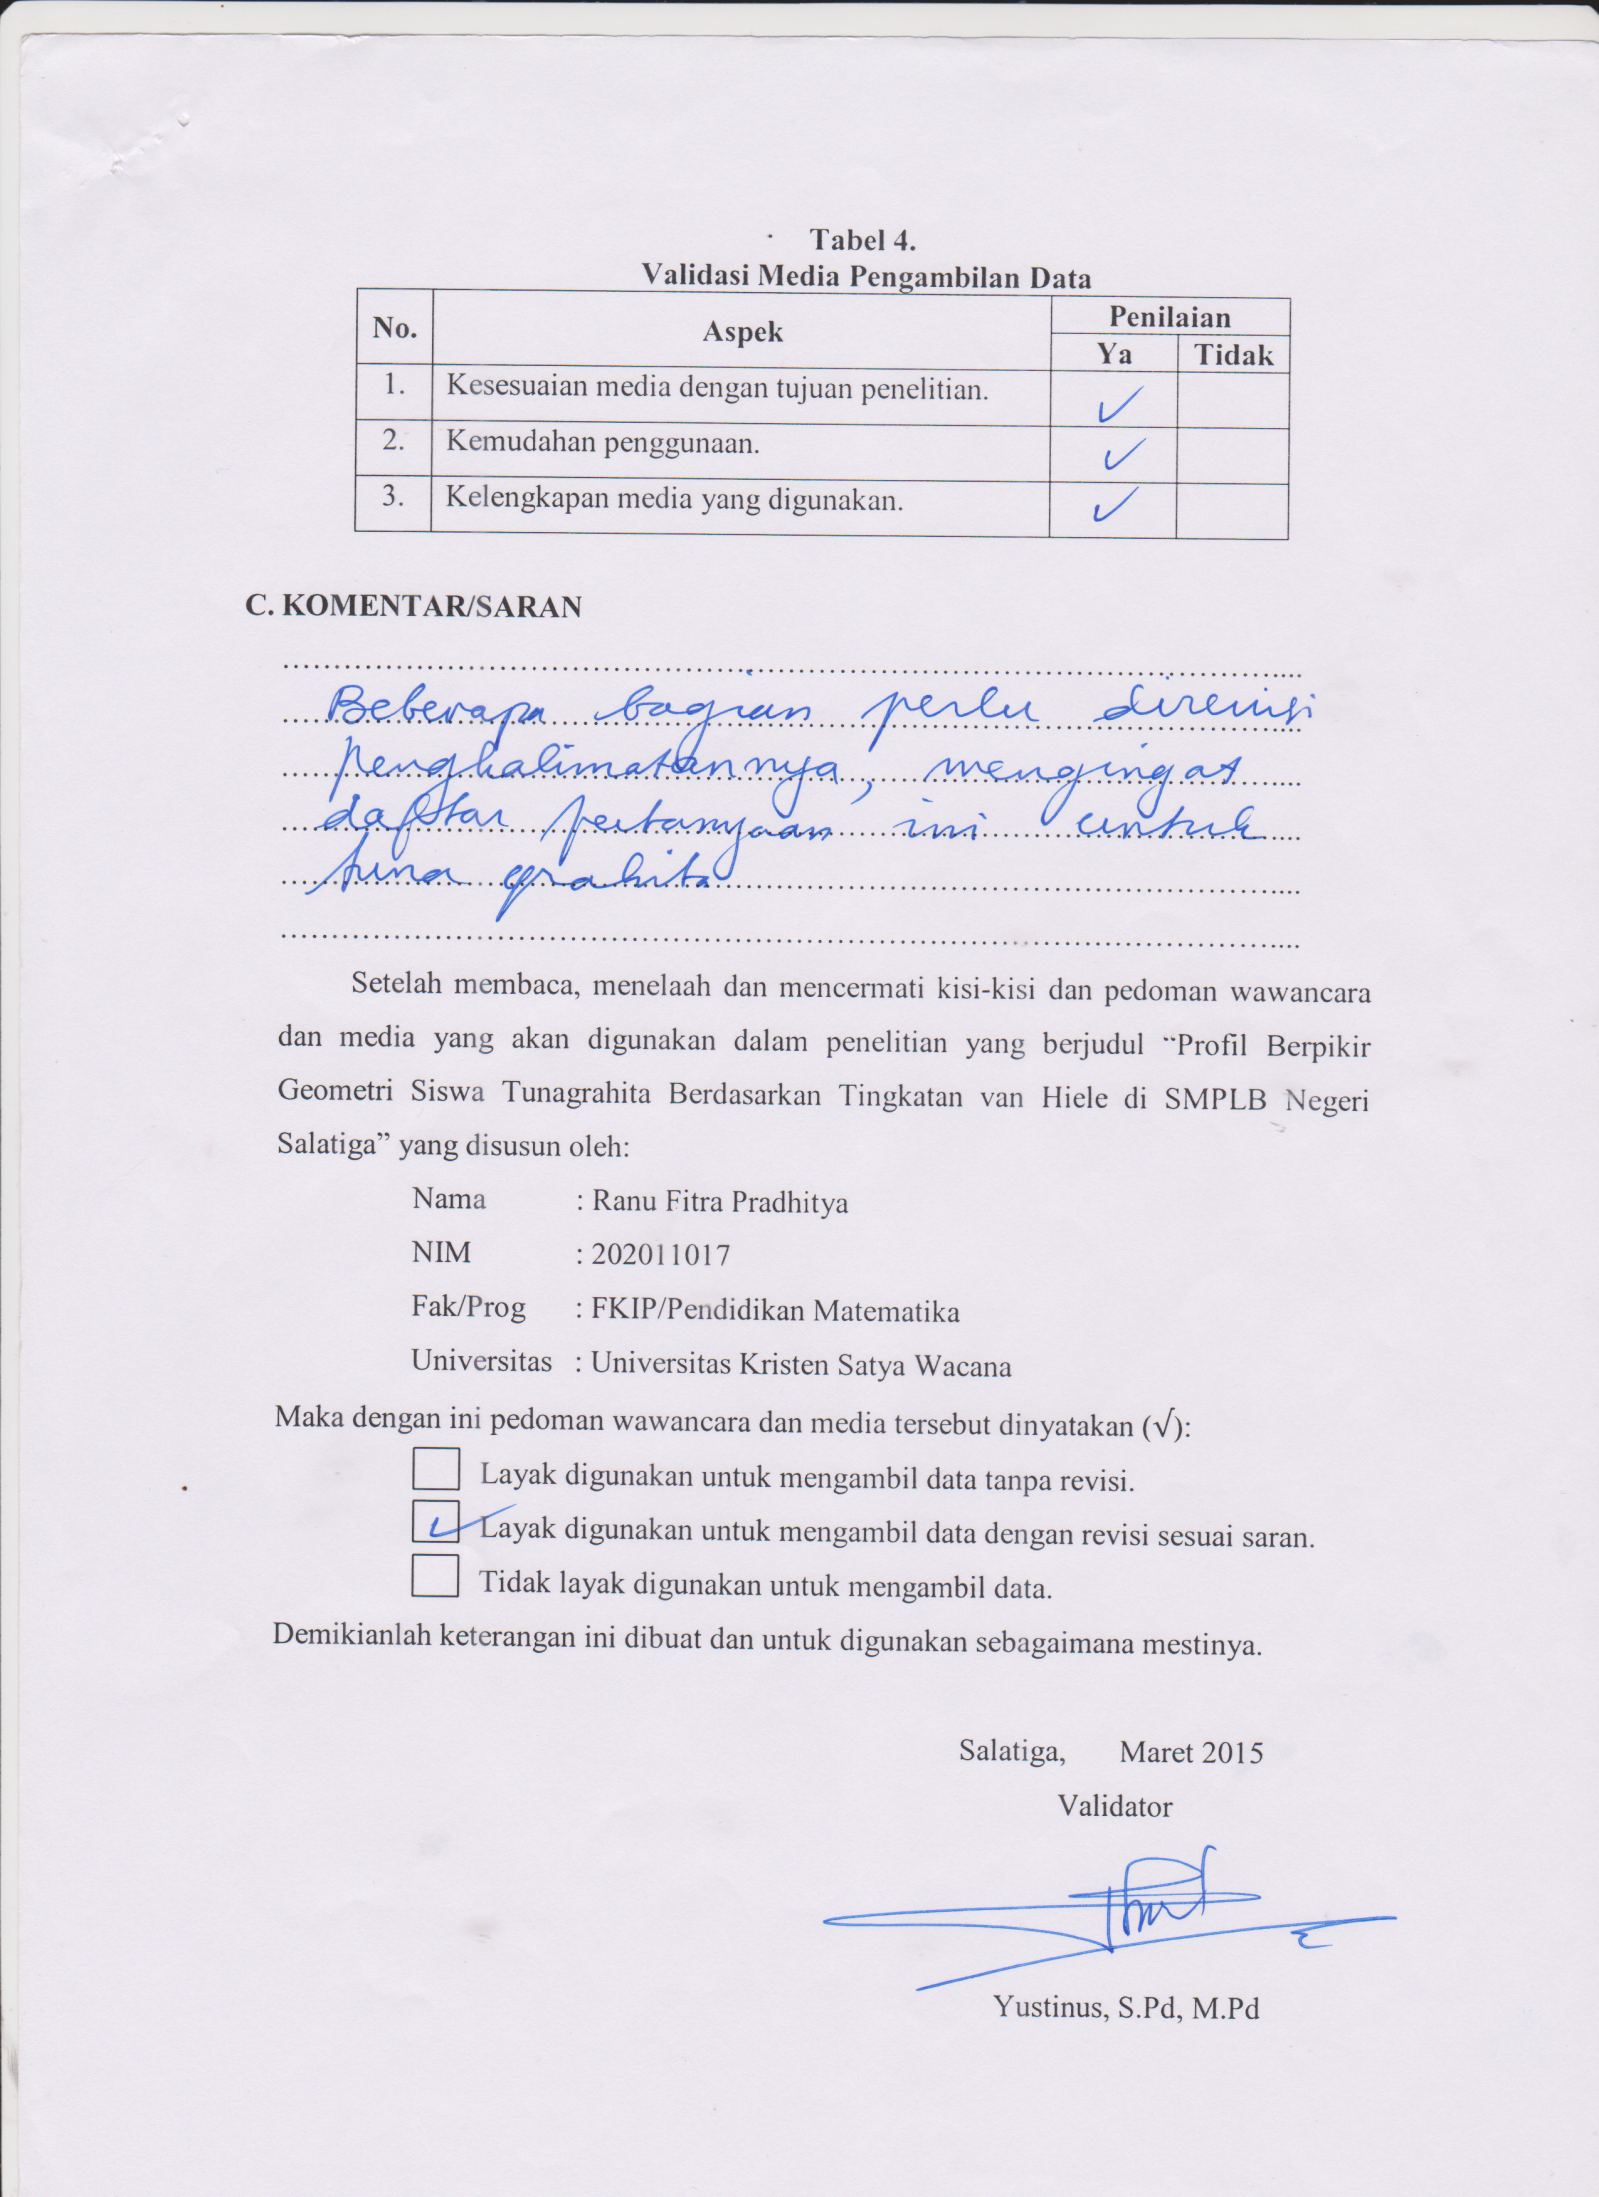 Tabel 4.
Validasi Media Pengambilan Data
No. Aspek Penilaian
Ya Tidak
1. Kesesuaian media dengan tujuan penelitian. ✓
2. Kemudahan penggunaan. ✓
3. Kelengkapan media yang digunakan. ✓
C. KOMENTAR/SARAN
Beberapa bagian perlu direvisi
pengkalimatannya, mengingat
daftar pertanyaan ini untuk
tuna grahita
Setelah membaca, menelaah dan mencermati kisi-kisi dan pedoman wawancara
dan media yang akan digunakan dalam penelitian yang berjudul “Profil Berpikir
Geometri Siswa Tunagrahita Berdasarkan Tingkatan van Hiele di SMPLB Negeri
Salatiga” yang disusun oleh:
Nama : Ranu Fitra Pradhitya
NIM : 202011017
Fak/Prog : FKIP/Pendidikan Matematika
Universitas : Universitas Kristen Satya Wacana
Maka dengan ini pedoman wawancara dan media tersebut dinyatakan (√):
Layak digunakan untuk mengambil data tanpa revisi.
✓ Layak digunakan untuk mengambil data dengan revisi sesuai saran.
Tidak layak digunakan untuk mengambil data.
Demikianlah keterangan ini dibuat dan untuk digunakan sebagaimana mestinya.
Salatiga, Maret 2015
Validator
Yustinus, S.Pd, M.Pd